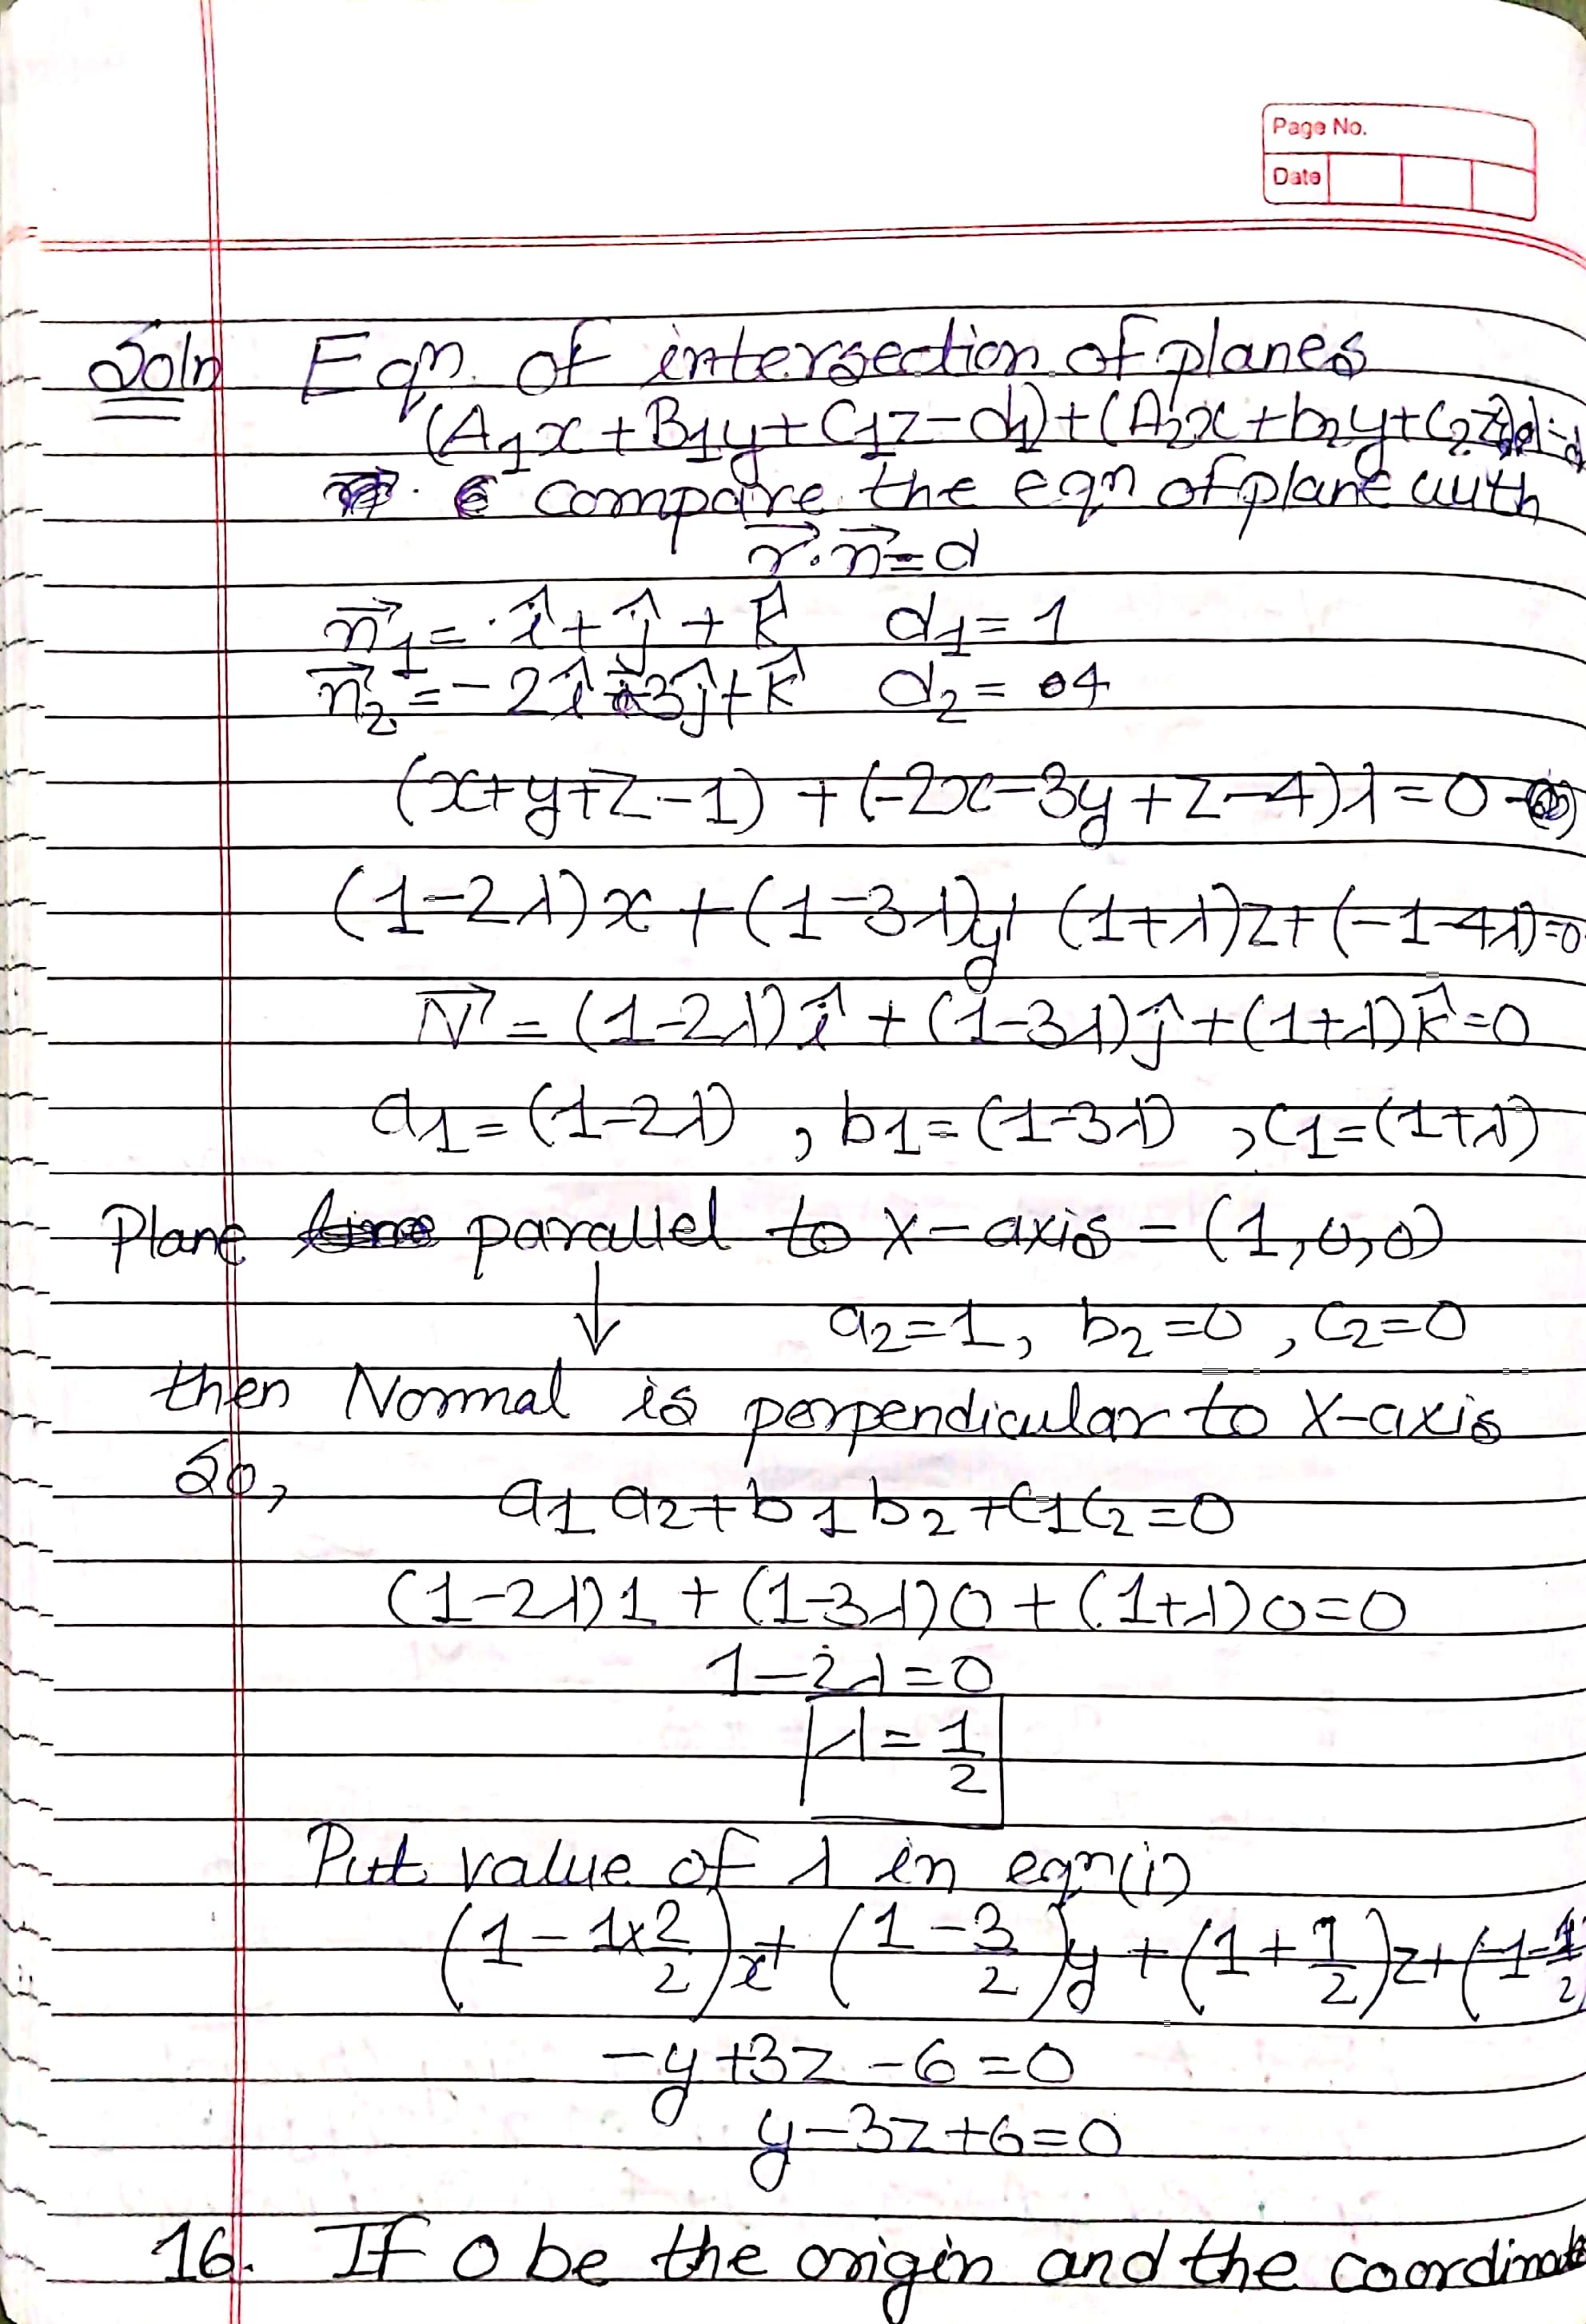 Page No.
Date
Soln Eqn. of intersection of planes
(A₁x + B₁y + C₁z - d₁) + (A₂x + b₂y + C₂z
compare the eqn of plane with
r⃗.n⃗ = d
n⃗₁ = î + ĵ + k̂ d₁ = 1
n⃗₂ = -2î - 3ĵ + k̂ d₂ = 4
(x+y+z-1) + (-2x-3y+z-4)λ = 0
(1-2λ)x + (1-3λ)y + (1+λ)z + (-1-4λ)=0
N⃗ = (1-2λ)î + (1-3λ)ĵ + (1+λ)k̂=0
a₁ = (1-2λ) , b₁ = (1-3λ) , c₁ = (1+λ)
Plane parallel to X-axis = (1,0,0)
↓ a₂=1, b₂=0, c₂=0
then Normal is perpendicular to X-axis
So, a₁a₂ + b₁b₂ + c₁c₂ = 0
(1-2λ)1 + (1-3λ)0 + (1+λ)0=0
1-2λ=0
λ = 1/2
Put value of λ in eqn(i)
(1 - 1×2/2)x + (1 - 3/2)y + (1 + 1/2)z + (-1-
-y+3z-6=0
y-3z+6=0
16. If O be the origin and the coordinate